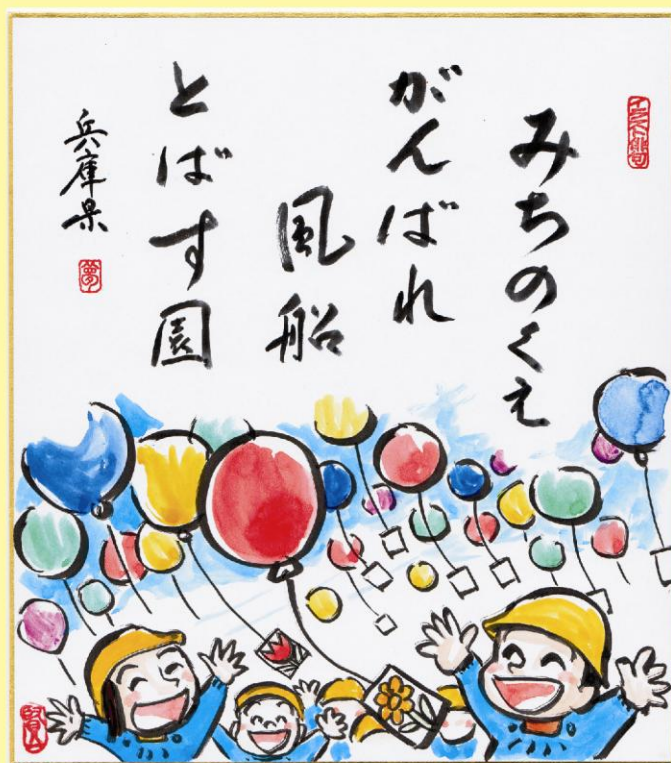 みちのくえ
がんばれ
風船
とばす園
兵庫県
夢